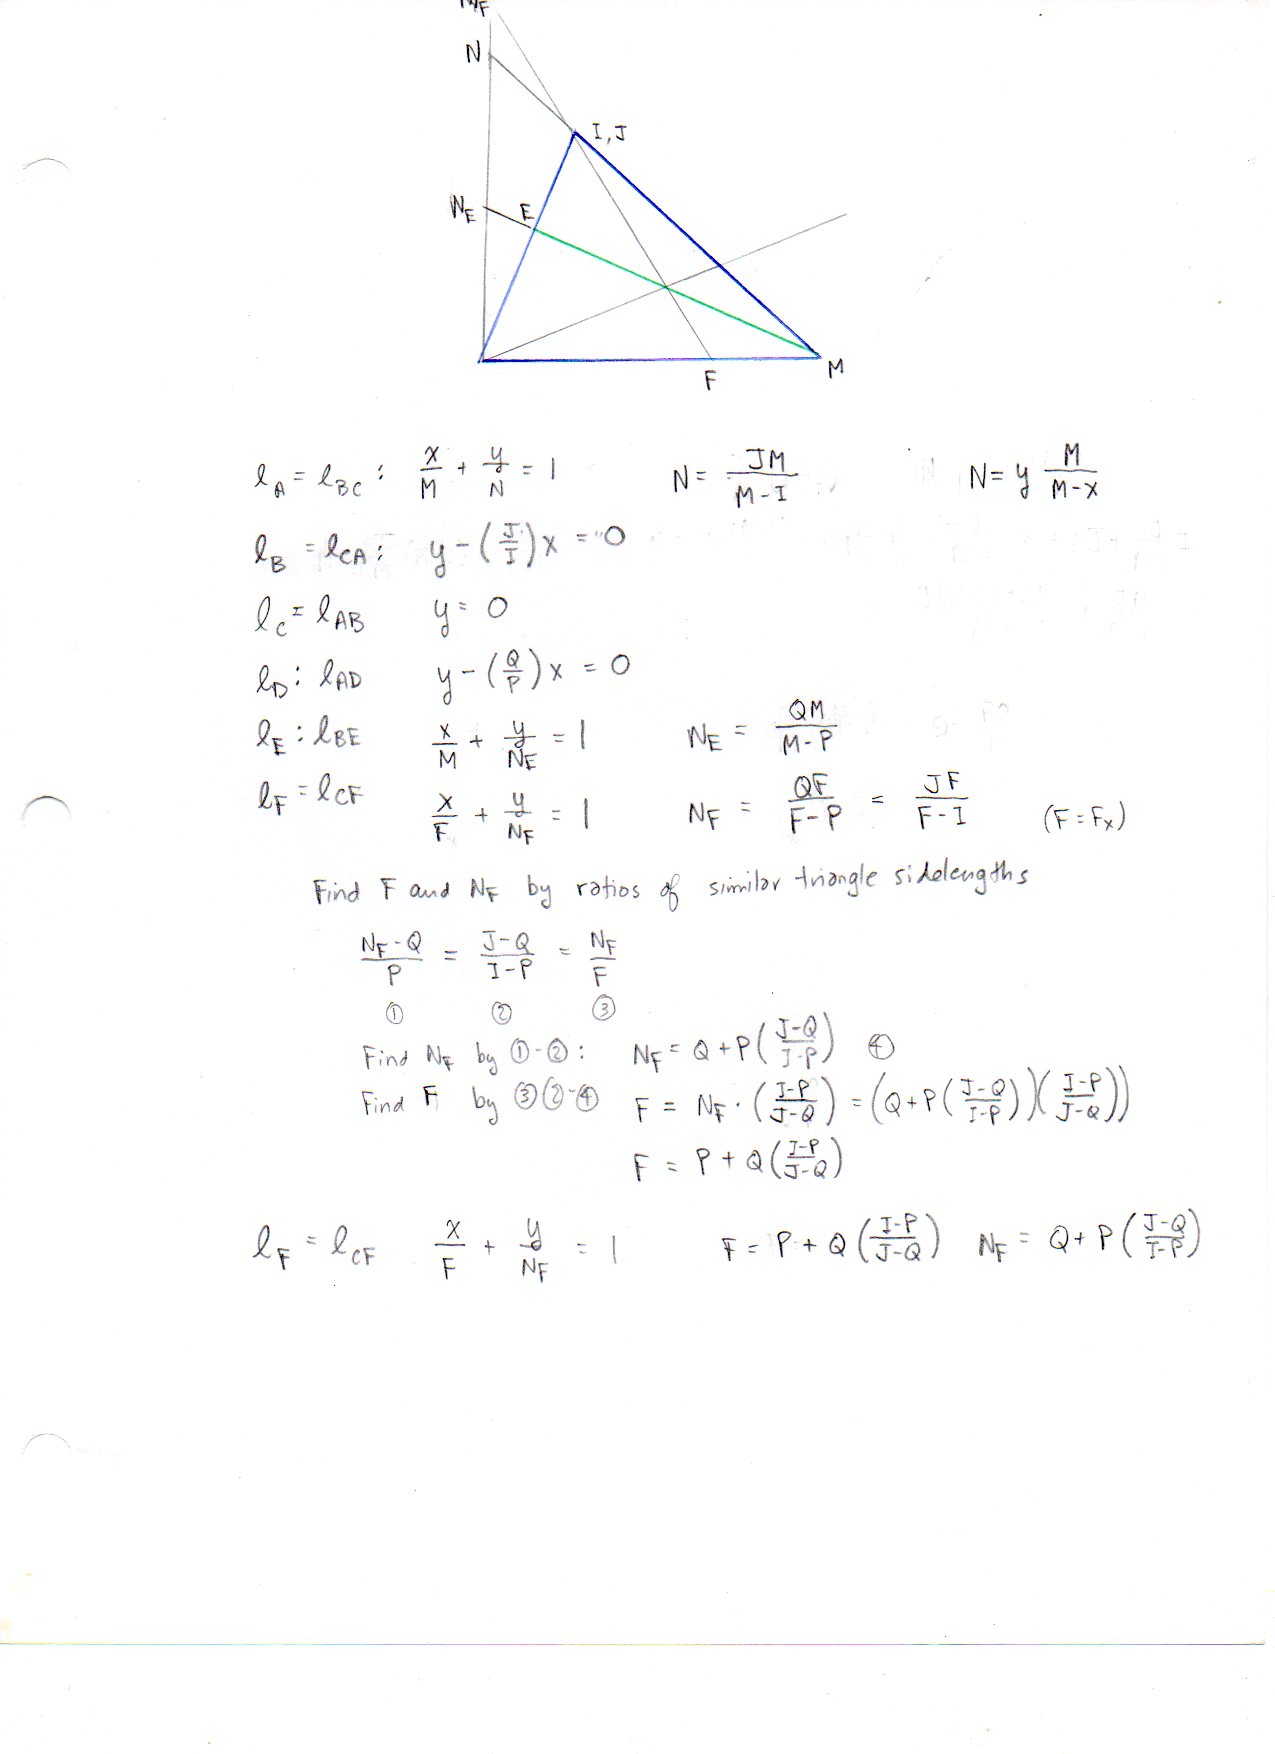 N_F
N
I, J
N_E E
F M
l_A = l_BC : x/M + y/N = 1 N = JM/(M-I) N = y M/(M-x)
l_B = l_CA : y - (J/I)x = 0
l_C = l_AB y = 0
l_D : l_AD y - (Q/P)x = 0
l_E : l_BE x/M + y/N_E = 1 N_E = QM/(M-P)
l_F = l_CF x/F + y/N_F = 1 N_F = QF/(F-P) = JF/(F-I) (F = F_x)
Find F and N_F by ratios of similar triangle sidelengths
(N_F - Q)/P = (J-Q)/(I-P) = N_F/F
① ② ③
Find N_F by ①-②: N_F = Q + P((J-Q)/(I-P)) ④
Find F by ③②-④ F = N_F · ((I-P)/(J-Q)) = (Q + P((J-Q)/(I-P)))((I-P)/(J-Q)))
F = P + Q((I-P)/(J-Q))
l_F = l_CF x/F + y/N_F = 1 F = P + Q((I-P)/(J-Q)) N_F = Q + P((J-Q)/(I-P))